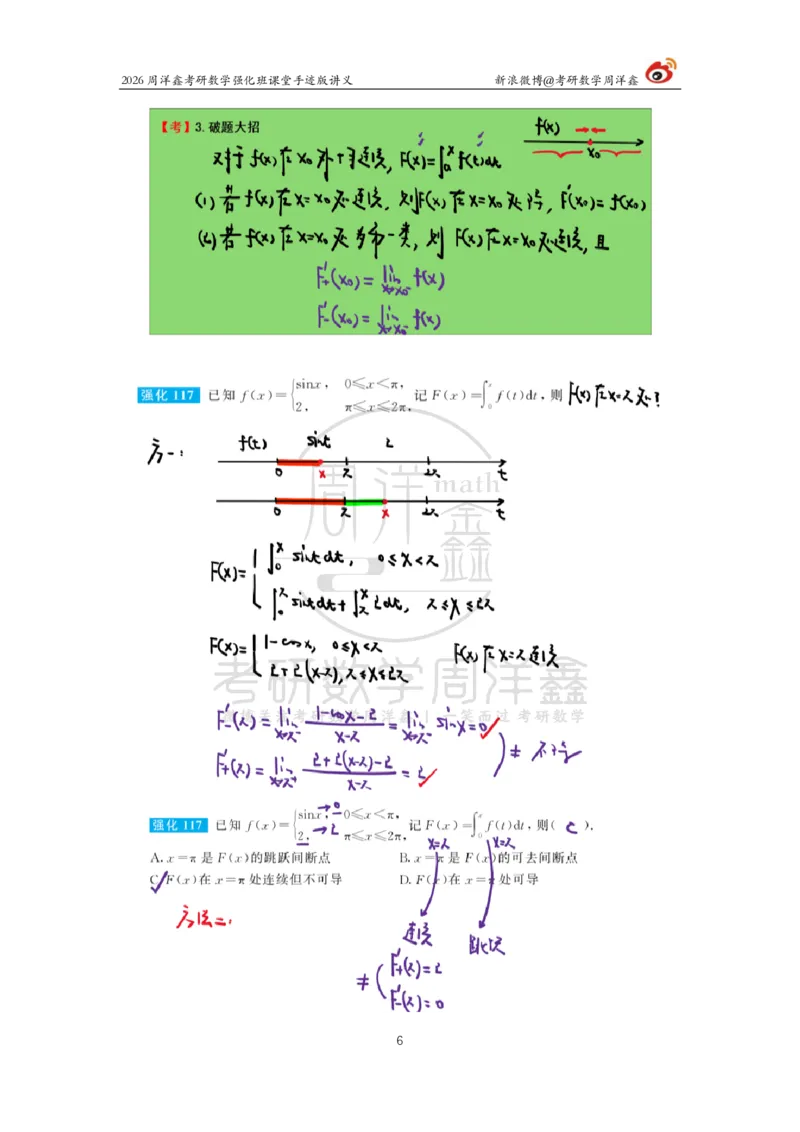 2026 周洋鑫考研数学强化班课堂手迹版讲义 新浪微博@考研数学周洋鑫
【考】3. 破题大招 f(x) x₀
对于 f(x) 在 x₀ 外个于连续, F(x)=∫ₐˣ f(t)dt
(1) 若 f(x) 在 x=x₀ 处连续, 则 F(x) 在 x=x₀ 处可导, F'(x₀)=f(x₀)
(2) 若 f(x) 在 x=x₀ 处为第一类, 则 F(x) 在 x=x₀ 处连续, 且
F'₊(x₀)= lim x→x₀⁻ f(x)
F'₋(x₀)= lim x→x₀⁻ f(x)
强化 117 已知 f(x)={sinx, 0≤x<π, 2, π≤x≤2π, 记 F(x)=∫₀ˣ f(t)dt, 则 F(x) 在 x=π 处?
方一: f(t) sint 2
0 x π 2π t
0 π x 2π t
F(x)={∫₀ˣ sintdt, 0≤x<π
∫₀^π sintdt+∫_πˣ 2dt, π≤x≤2π
F(x)={1-cosx, 0≤x<π
2+2(x-π), π≤x≤2π
F(x) 在 x=π 连续
F'₋(π)= lim x→π⁻ (1-cosx-2)/(x-π) = lim x→π⁻ sinx=0
F'₊(π)= lim x→π⁺ (2+2(x-π)-2)/(x-π) =2
≠ 不可导
强化 117 已知 f(x)={sinx, →0 0≤x<π, 2, →2 π≤x≤2π, 记 F(x)=∫₀ˣ f(t)dt, 则( C ).
x=π x=π
A. x=π 是 F(x)的跳跃间断点 B. x=π 是 F(x)的可去间断点
C. F(x)在 x=π 处连续但不可导 D. F(x)在 x=π 处可导
方法二:
连续 跳跃
≠ ( F'₊(π)=2
F'₋(π)=0
周洋 math 鑫
考研数学周洋鑫
考研数学周洋鑫 | 一笑而过 考研数学
6